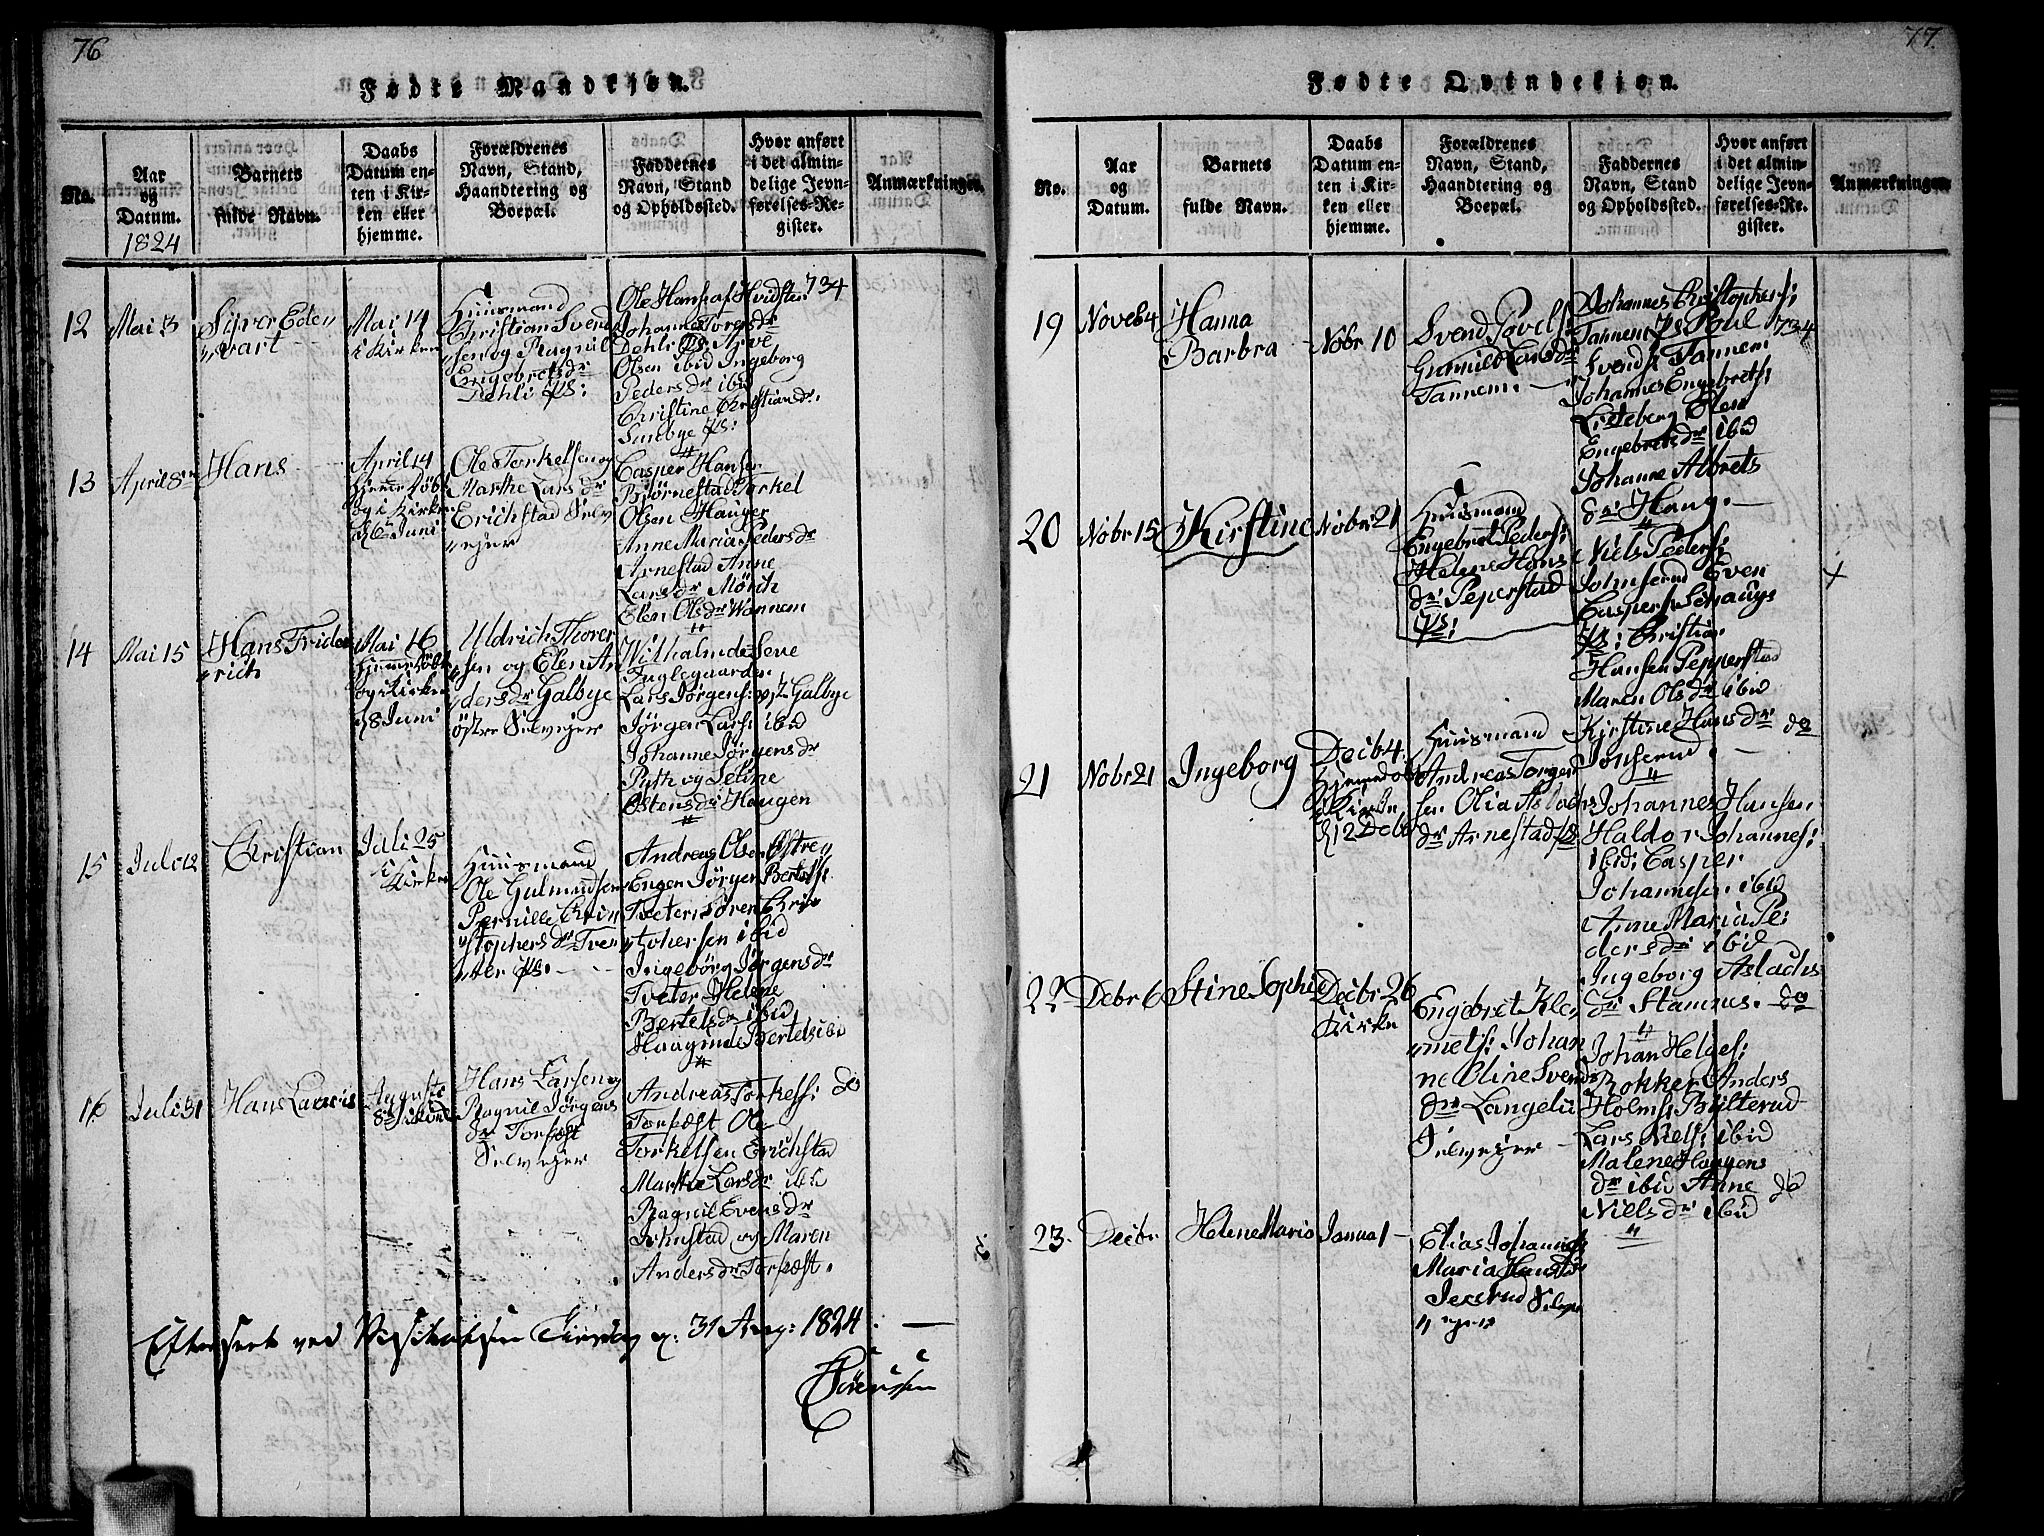 76
Fødte Mandkjøn.
No.
Aar
og
Datum.
1824
Barnets
fulde Navn.
Daabs
Datum en-
ten i Kir-
ken eller
hjemme.
Forældrenes
Navn, Stand,
Haandtering og
Boepæl.
Faddernes
Navn, Stand
og Opholdssted.
Hvor anført
i det almin-
delige Jevn-
førelses-Re-
gister.
Anmærkninger.
12
Mai 3
Siver Eden
wart
Mai 14
i Kirken
Huusmand
Christian Svend
sen og Ragnil
Engebretsdr
Dehli
Ole Hans af Hvidsten
Johannes Torgersdr
Dehli Arve
Olsen ibid Ingeborg
Pedersdr ibid
Christine Christiandr:
Sundbye
734
13
April 8
Hans
April 14
Hjemmedøbt
og i Kirken
d 6te Juni
Ole Torkelsen og
Marthe Larsdr
Erichstad Selv
ejer
Casper Hansen
Bjørnestad Torkel
Olsen Hauger
Anne Maria Pedersdr
Arnestad Anne
Larsdr Mörch
Elen Olsdr Wannem
14
Mai 15
Hans Fride
rich
Mai 16
Hjemmedøbt
og i Kirken
d 8 Juni
Uldrich Thover
sen og Elen An
dersdr Galbye
östre Selvejer
Wilhalm de Seve
Fuglegaarden
Lars Jörgens: og Galbye
Jörgen Lars ibid
Johanne Jörgensdr
Ryth og Seline
Østensdr Haugen
15
Juli 12
Christian
Juli 25
i Kirken
Huusmand
Ole Gulmundsen
Pernille Chri
stophersdr Tve
ter
Andreas Olsen Østrey
Engen Jörgen Bertels:
Tveter Sören Chri
stohersen ibid
Ingebörg Jørgensdr
Tveter Helene
Bertelsdr ibid
Haagine Bertels ibid
16
Juli 31
Hans Laewis
Auguste
8
Hans Larsen og
Ragnil Jörgens
dr Torpæst
Selvejer
Andreas Torkels: do
Torpæst Ole
Torkelsen Erichstad
Marthe Larsdr ibid
Ragnil Evensdr
Johnstad og Maren
Andersdr Torpæst.
Efterseet ved Visitatsen Tirsdag d: 31 Aug: 1824.
Sörenssen
77
Fødte Qvindekjøn.
No.
Aar
og
Datum.
Barnets
fulde Navn.
Daabs
Datum en-
ten i Kir-
ken eller
hjemme.
Forældrenes
Navn, Stand,
Haandtering og
Boepæl.
Faddernes
Navn, Stand
og Opholdssted.
Hvor anført
i det almin-
delige Jevn-
førelses-Re-
gister.
Anmærkninger
19
Noveb 4
Hanna
Barbra
Nobr 10
Svend Povels
Gunnild Larsdr
Tannem.
Johannes Christophers:
Tannem Poul
Svends Tannem
Johannes Engebrets:
Listeberg Elen
Engebretsdr ibid
Johanne Albrets
dr: Haug.
734
20
Nobr 15
Kirstine
Nobr 21
Huusmand
Engebret Peders:
Helene Hans
dr: Peperstad
Niels Peders:
Johnserud Even
Caspers Senaugs
Christian
Hansen Pepperstad
Maren Olsdr ibid
Kirstine Hansdr do
Jonserud.
21
Nobr 21
Ingeborg
Decb 4.
Hjemmedøbt
i Kirke
d 12 Decbr
Huusmand
Andreas Torger
sen Olia Aslachs
dr Arnestad
Johannes Hansen
Haldor Johannes:
ibid: Casper
Johannesen ibid
Anne Maria Pe:
dersdr: ibid
Ingeborg Aslachs
dr: Stamnes. do
22
Debr 6
Stine Sophie
Decbr 26
Kirke
Engebret Kle
mets: Johan
ne Oline Svends
dr Langelii
Selvejer
Johan Helges:
Rokker Anders
Holms: Bylterud
Lars Niels: ibid
Malene Haagens
dr ibid Anne do
Nielsdr ibid
23.
Decbr
Helene Maria
Janua 1
Elias Johannes
Maria Hansdr
Jexerud Selv
ejer